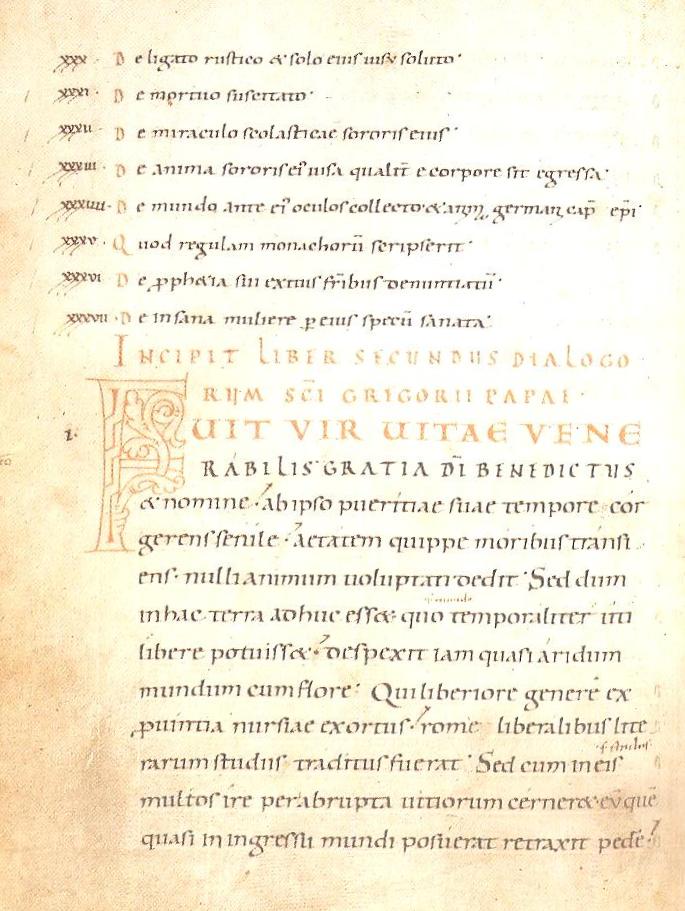 xxx· De ligato rustico & solo eius uisu soluto·
xxxi· De mortuo suscitato·
xxxii De miraculo scolasticae sororis eius·
xxxiii De anima sororis ei' uisa qualit̄ e corpore sit egressa·
xxxiiii· De mundo ante ei' oculos collecto·& german cap̄ ep̄i·
xxxv· Quod regulam monachorū scripserit·
xxxvi De p̱ph&ia sui exitus fr̄ibus denuntiatū·
xxxvii· De insana muliere p̱ eius specū sanata·
INCIPIT LIBER SECUNDUS DIALOGO
RUM SC̄I GRIGORII PAPAE·
i· FUIT VIR UITAE VENE
RABILIS· GRATIA DĪ BENEDICTUS
& nomine· ab ipso pueritiae suae tempore cor
gerens senile· aetatem quippe moribus transi
ens· nulli animum uoluptati dedit· Sed dum
in hac terra adhuc ess& quo temporaliter uti
libere potuiss&· despexit iam quasi aridum
mundum cum flore· Qui liberiore genere ex
p̱uintia nursiae exortus· rome liberalibus litte
rarum studiis traditus fuerat· Sed cum in eis
multos ire per abrupta uitiorum cerner&· eū quē
quasi in ingressu mundi posuerat retraxit pedē·